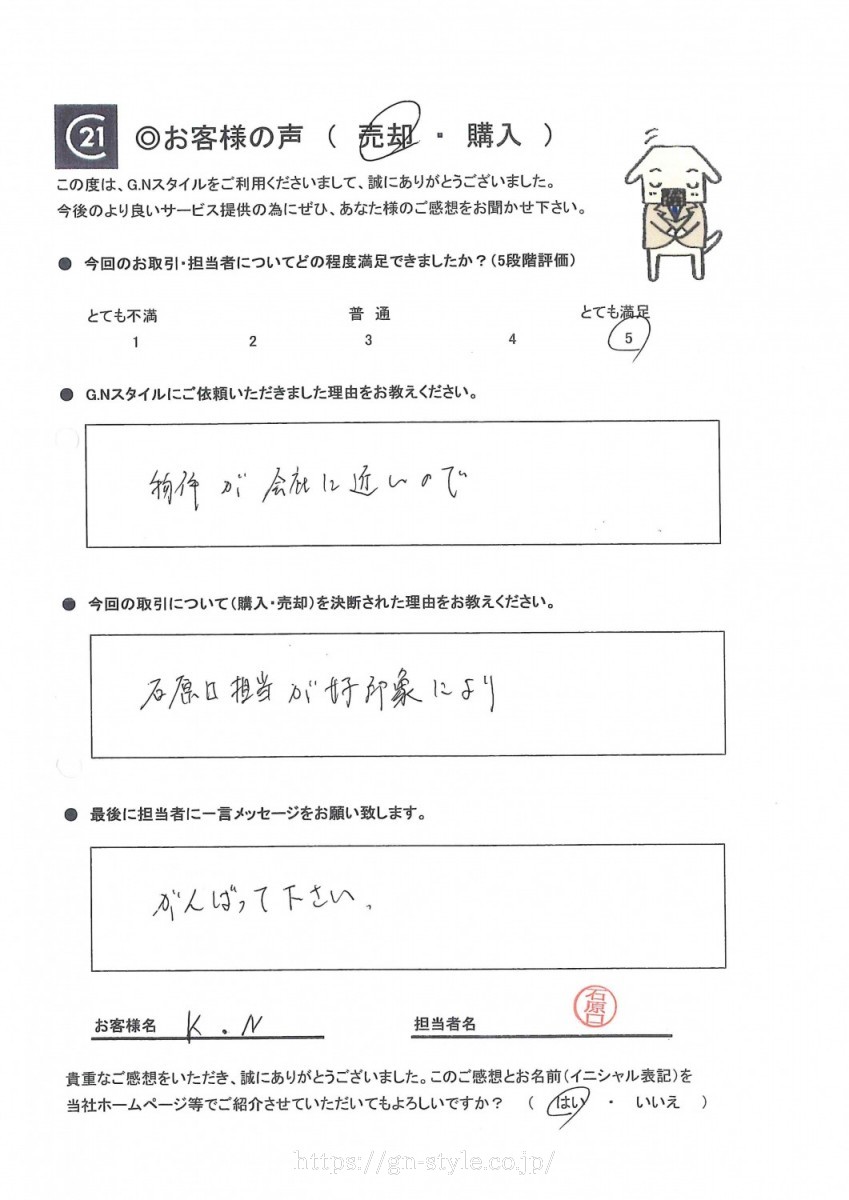 C21 ◎お客様の声 ( 売却 ・ 購入 )
この度は、G.Nスタイルをご利用くださいまして、誠にありがとうございました。
今後のより良いサービス提供の為にぜひ、あなた様のご感想をお聞かせ下さい。
● 今回のお取引・担当者についてどの程度満足できましたか？(5段階評価)
とても不満 普 通 とても満足
1 2 3 4 5
● G.Nスタイルにご依頼いただきました理由をお教えください。
物件が会社に近いので
● 今回の取引について(購入・売却)を決断された理由をお教えください。
石原口担当が好印象により
● 最後に担当者に一言メッセージをお願い致します。
がんばって下さい、
お客様名 K.N 担当者名 石原口
貴重なご感想をいただき、誠にありがとうございました。このご感想とお名前(イニシャル表記)を
当社ホームページ等でご紹介させていただいてもよろしいですか？ ( はい ・ いいえ )
https://gn-style.co.jp/